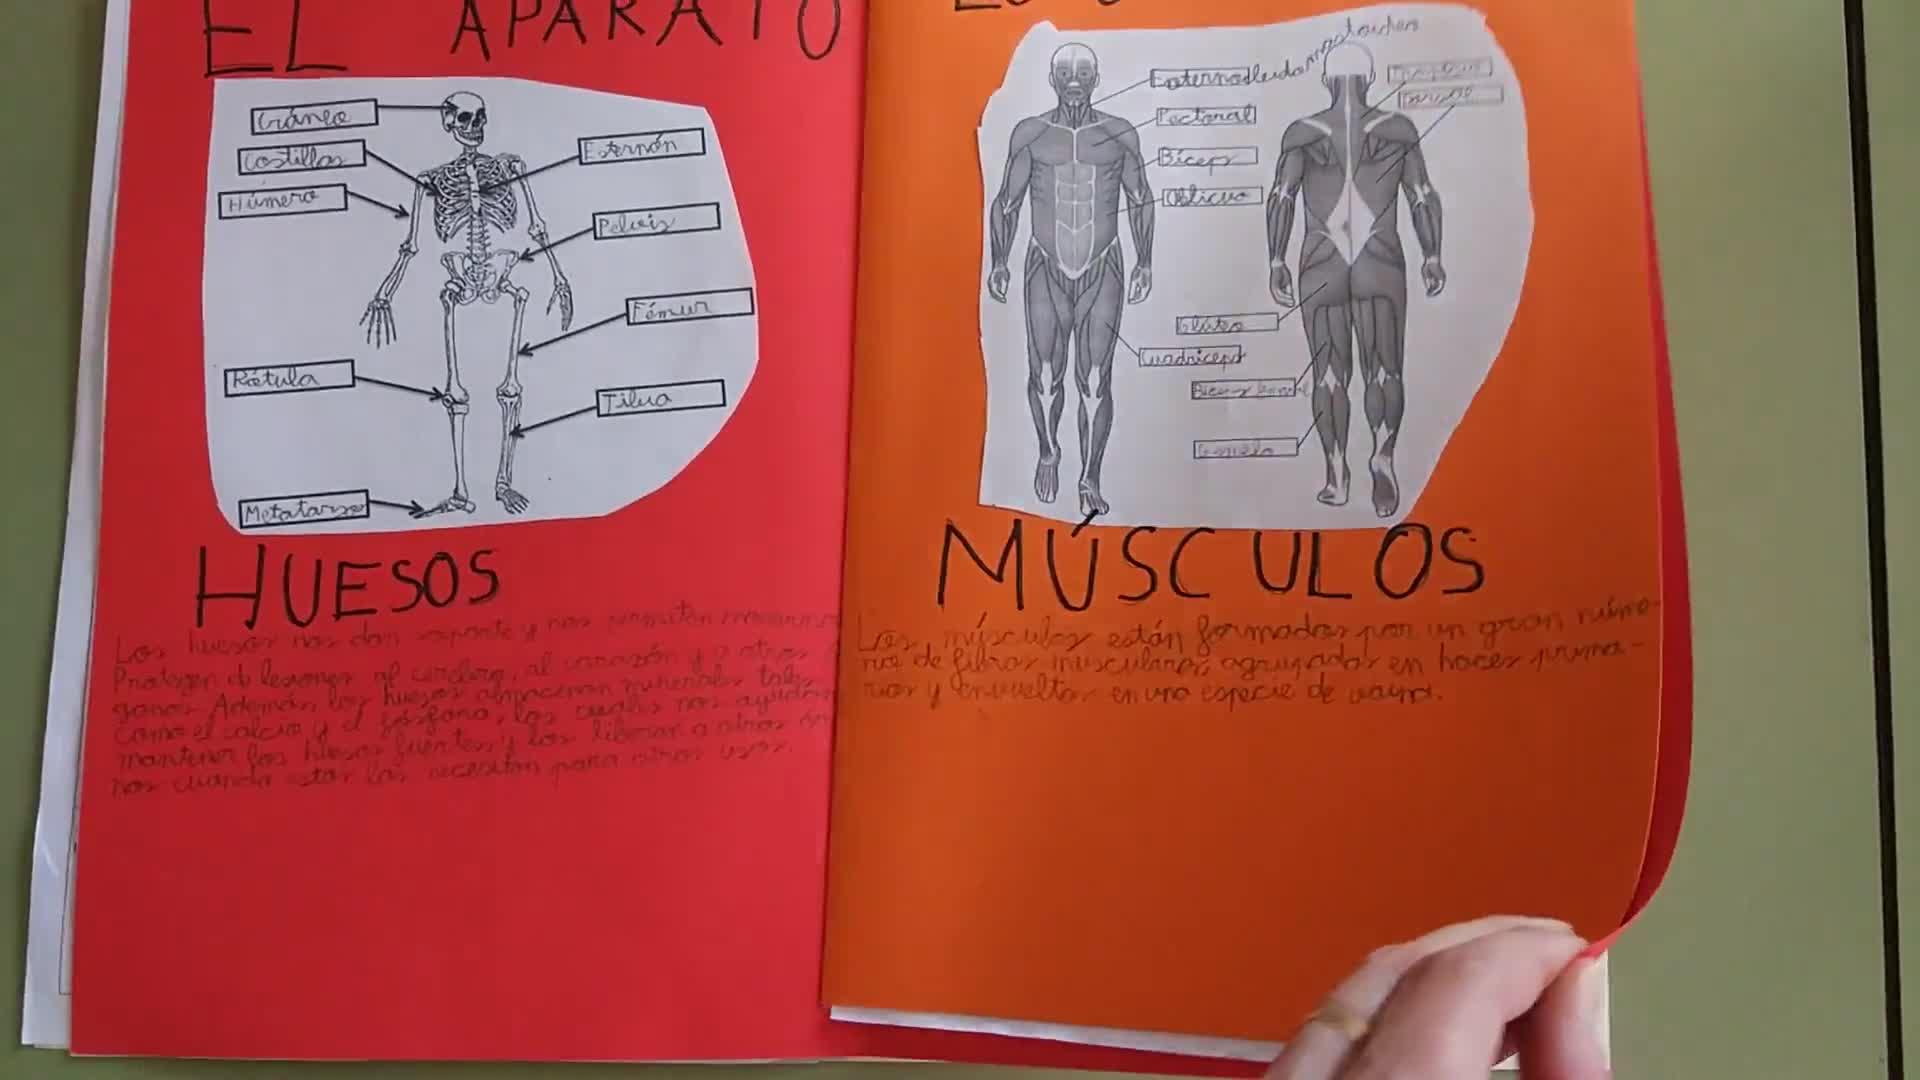 EL APARATO
Cráneo
Costillas
Húmero
Esternón
Pelvis
Fémur
Rótula
Tibua
Metatarso
HUESOS
Los huesos nos dan soporte y nos permiten movernos
Protegen de lesiones al cerebro, al corazón y a otros
ganos. Además, los huesos almacenan minerales tales
como el calcio y el fósforo, los cuales nos ayudan
mantener los huesos fuertes y los liberan a otros ór
nos cuando estos los necesitan para otros usos.
Esternocleidomastoideo
Pectoral
Bíceps
Oblicuo
Dorsal
Glúteo
Cuadriceps
Biceps
Gemelo
MÚSCULOS
Los músculos están formados por un gran núme-
ro de fibras musculares agrupadas en haces prima-
rios y envueltos en una especie de vaina.